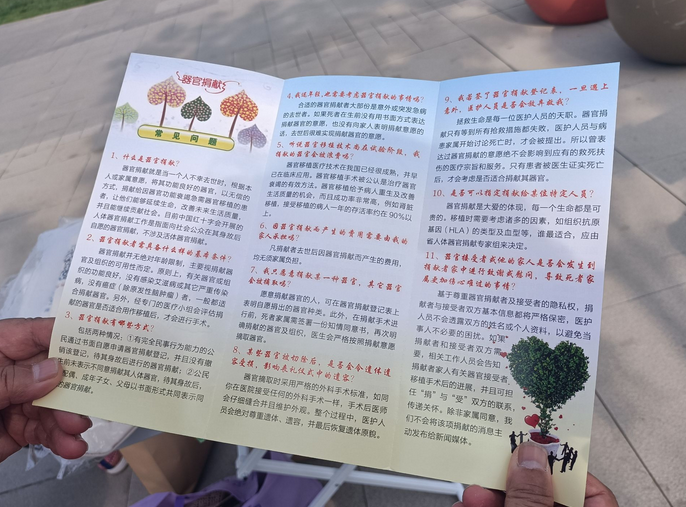 器官捐献
常见问题
1、什么是器官捐献?
器官捐献就是当一个人不幸去世时,根本
人或家属意愿,将其功能良好的器官,以无偿的
方式,捐献给因器官功能衰竭急需器官移植的患
者,让他们能够延续生命,改善未来生活质量,
并且能继续贡献社会。目前中国红十字会开展的
人体器官捐献工作是指面向社会公众在其身故后
自愿的器官捐献,不涉及活体器官捐献。
2、器官捐献者需具备什么样的基本条件?
器官捐献并无绝对年龄限制,主要视捐献器
官及组织的可用性而定。原则上,有关器官或组
织的功能良好,没有感染艾滋病或其它严重传染
病,没有癌症(除原发性脑肿瘤)者,一般都适
合捐献器官。另外,经专门的医疗小组会评估捐
献的器官是否适合用作移植后,才会进行手术。
3、器官捐献有哪些方式?
包括两种情况:①有完全民事行为能力的公
民通过书面自愿申请器官捐献登记,并且没有撤
销该登记,待其身故后进行的器官捐献;②公民
生前未表示不同意捐献其人体器官,待其身故后,
配偶、成年子女、父母以书面形式共同表示同
的器官捐献。
4、我还年轻,也需要考虑器官捐献的事情吗?
合适的器官捐献者大部份是意外或突发急病
的去世者。如果死者在生前没有用书面方式表达
捐献器官的意愿,也没有向家人表明捐献意愿的
话,去世后很难实现捐献器官的意愿。
5、听说器官移植技术尚在试验阶段,我
捐献的器官会被浪费吗?
器官移植医疗技术在我国已经很成熟,并早
已在临床应用。器官移植手术被公认是治疗器官
衰竭的有效方法。器官移植给予病人重生及改善
生活质量的机会,而且成功率非常高,例如肾脏
移植,接受移植的病人一年的存活率约在 90%以
上。
6、因器官捐献而产生的费用需要由我的
家人承担吗?
凡捐献者去世后因器官捐献而产生的费用,
均无须家属负担。
7、我只愿意捐献某一种器官,其它器官
会放捐吗?
愿意捐献器官的人,可在器官捐献登记表上
表明自愿捐出的器官种类。此外,在捐献手术进
行前,死者家属需签署一份知情同意书,再次明
确捐献的器官及组织,医生会严格按照捐献意愿
摘取器官。
8、某些器官被切除后,是否会令遗体遭
受损,影响丧礼仪式中的遗容?
器官摘取时采用严格的外科手术标准,如同
你在医院接受任何的外科手术一样,手术后医师
会仔细缝合并且维护外观。整个过程中,医护人
员会绝对尊重遗体、遗容,并最后恢复遗体原貌。
9、我若签了器官捐献登记表,一旦遇上
意外,医护人员是否会放弃救我?
拯救生命是每一位医护人员的天职。器官捐
献只有等到所有抢救措施都失败,医护人员与病
患家属开始讨论死亡时,才会被提出。所以曾表
达过器官捐献的意愿绝不会影响到应有的救死扶
伤的医疗宗旨和服务。只有患者被医生证实死亡
后,才会考虑是否适合捐献其器官。
10、是否可以指定捐献给某位特定人员?
器官捐献是大爱的体现,每一个生命都是可
贵的。移植时需要考虑诸多的因素,如组织抗原
基因(HLA)的类型及血型等,谁最适合,应由
省人体器官捐献专家组来决定。
11、器官接受者或他的家人是否会发生到
捐献者家中进行致谢或慰问,导致死者家
属更加伤心难过的事情?
基于尊重器官捐献者及接受者的隐私权,捐
献者与接受者双方基本信息都将严格保密,医护
人员不会透露双方的姓名或个人资料,以避免当
事人不必要的困扰。如果
捐献者和接受者双方需
要,相关工作人员会告知
捐献者家人有关器官接受者
移植手术后的进展,并且可担
任“捐”与“受”双方的联系,
传递关怀。除非家属同意,我
们不会将该项捐献的消息主
动发布给新闻媒体。